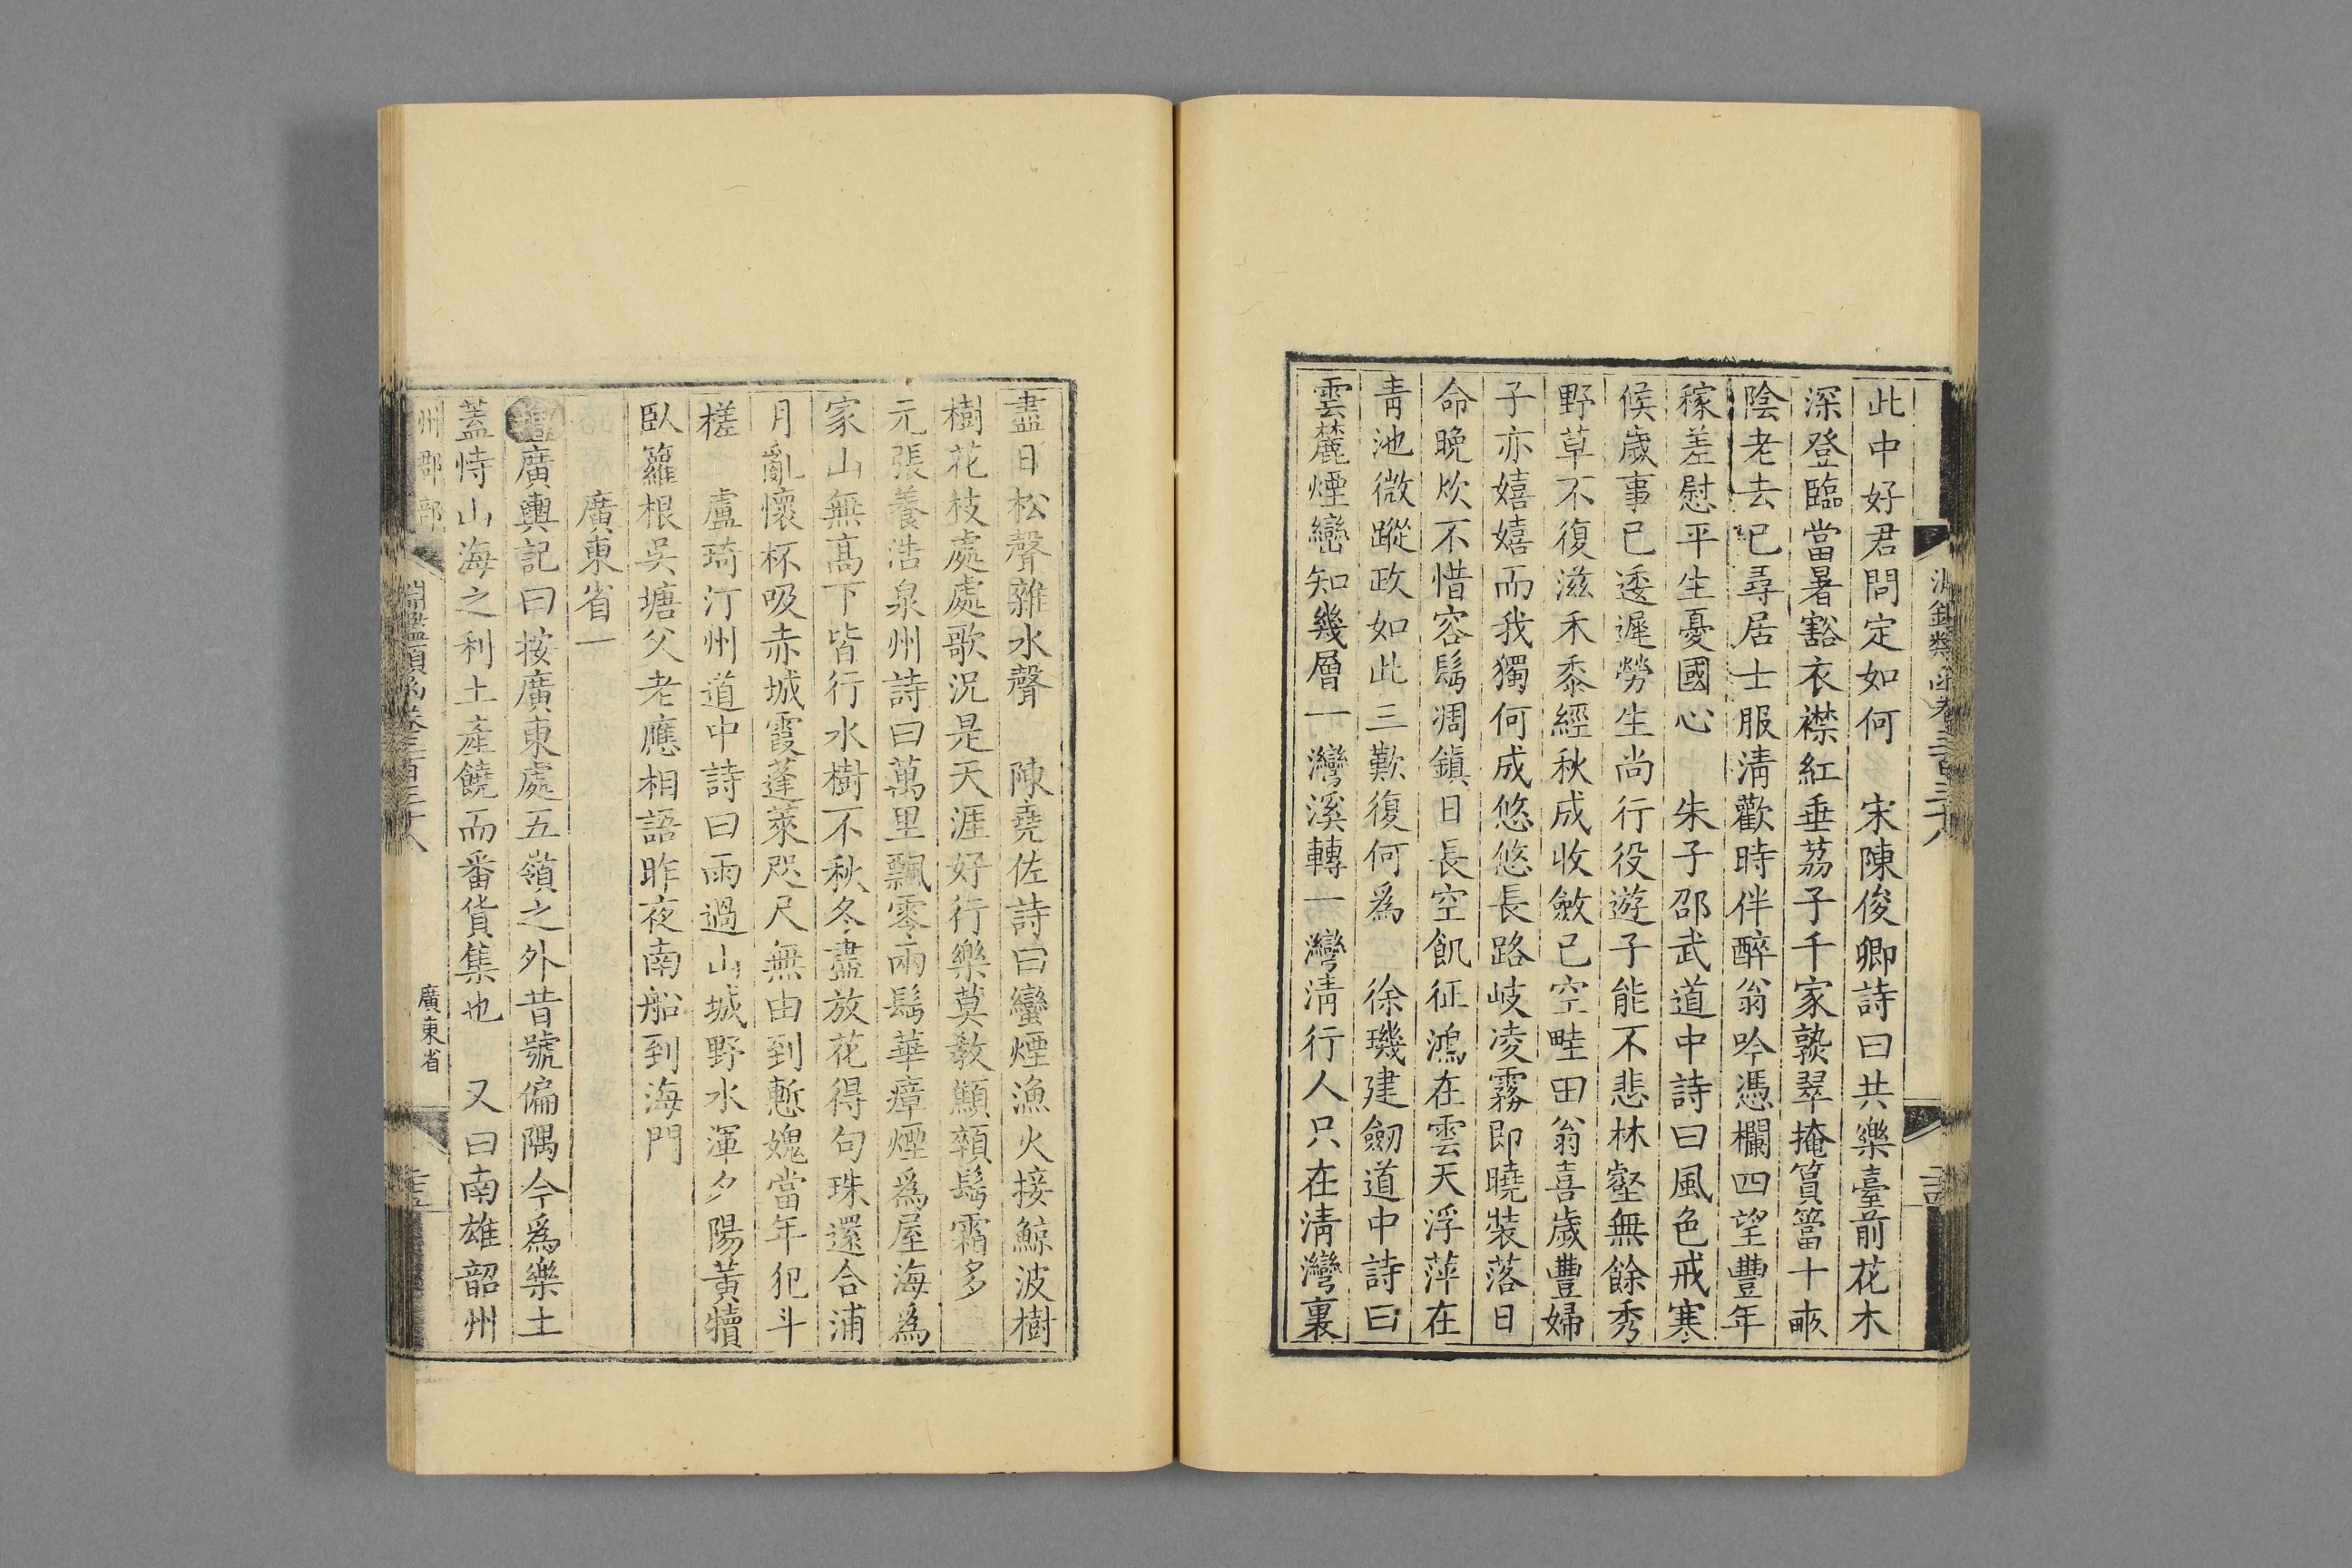 此中好君問定如何　宋陳俊卿詩曰共樂臺前花木
深登臨當暑豁衣襟紅垂荔子千家熟翠掩篔簹十畝
陰老去已尋居士服清歡時伴醉翁吟憑欄四望豐年
稼差慰平生憂國心　朱子邵武道中詩曰風色戒寒
候歲事已逶遲勞生尚行役遊子能不悲林壑無餘秀
野草不復滋禾黍經秋成收斂已空畦田翁喜歲豐婦
子亦嬉嬉而我獨何成悠悠長路岐凌霧即曉裝落日
命晚炊不惜容鬢凋鎮日長空飢征鴻在雲天浮萍在
青池微蹤政如此三歎復何爲　徐璣建劒道中詩曰
雲麓煙巒知幾層一灣溪轉一灣清行人只在清灣裏
盡日松聲雜水聲　陳堯佐詩曰蠻煙漁火接鯨波樹
樹花枝處處歌況是天涯好行樂莫敎顰頞鬢霜多
元張養浩泉州詩曰萬里飄零兩鬢華瘴煙爲屋海爲
家山無高下皆行水樹不秋冬盡放花得句珠還合浦
月亂懷杯吸赤城霞蓬萊咫尺無由到慙媿當年犯斗
槎　盧琦汀州道中詩曰雨過山城野水渾夕陽黃犢
臥籬根吳塘父老應相語昨夜南船到海門
廣東省一
廣輿記曰按廣東處五嶺之外昔號偏隅今爲樂土
蓋恃山海之利土產饒而番貨集也　又曰南雄韶州
州郡部
淵鑑類函卷三百三十八
廣東省